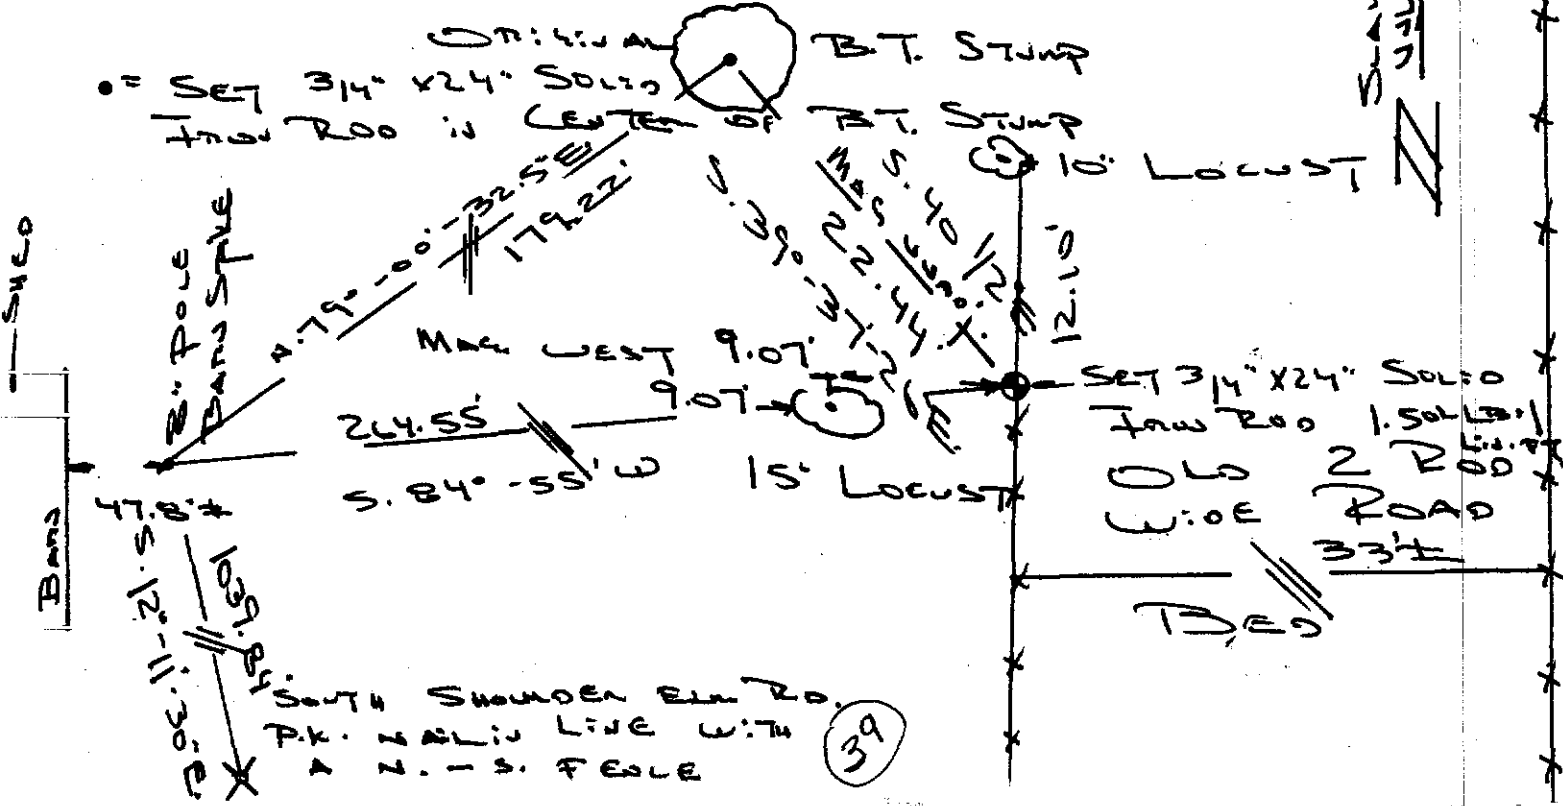 ORIGINAL B.T. STUMP
• = SET 3/4" X24" SOLID
IRON ROD IN CENTER OF B.T. STUMP
10" LOCUST
SHED
8" POLE
BARN STAKE
N. 79°-00'-32.5"E
179.27'
S. 39°-37'-26"E.
MAG
22.44'
S. 40 1/2 E
12.10'
MAG WEST 9.07'
9.07'
264.55'
S. 84°-55' W
15" LOCUST
SET 3/4" X24" SOLID
IRON ROD 1.50# LB./
LIN. FT
OLD 2 ROD
WIDE ROAD
33'±
BED
47.8'±
BARN
S. 12°-11'-30"E.
1039.84'
SOUTH SHOULDER ELM RD.
P.K. NAIL IN LINE WITH
A N.-S. FENCE
39